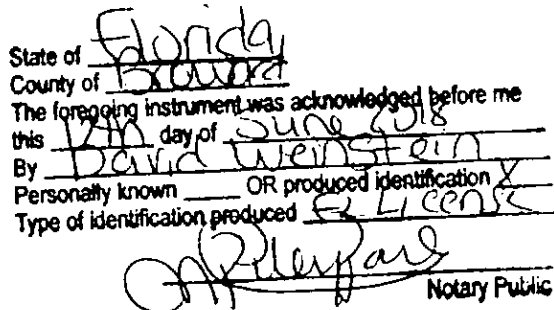 State of Florida
County of Broward
The foregoing instrument was acknowledged before me
this 12th day of June 2018
By David Weinstein
Personally known ____ OR produced identification X
Type of identification produced FL License
Notary Public